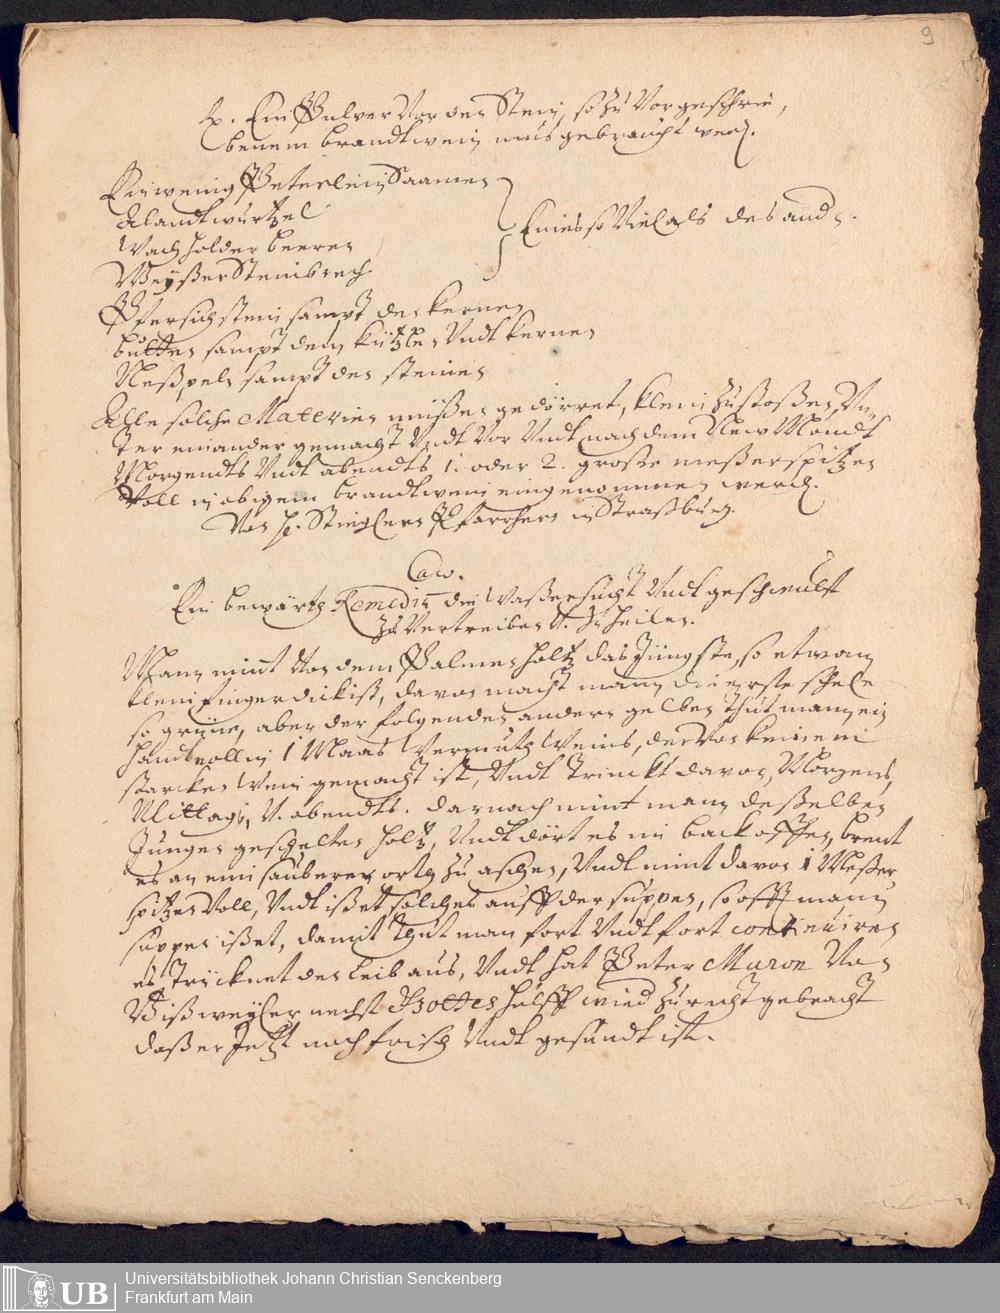 9
℞. Ein Pulver Vor den Stein, so zu Vorgeschrie,
benem brandtwein mus gebraucht werd.
Ein wenig Peterlein Saamen
Alandtwurtzel
Wachholder beeren
Weyßer Steinbrech.
Eines so Viel als des and.
Pfersichstein sampt den kernen
butten sampt dem Vndt kernen
Neßpeln sampt den steinen
Alle solche Materien müßen gedörret, klein zustoßen, Vn,
ter einander gemacht Vndt Vor Vndt nach dem New Mondt
Morgendts Vndt abendts 1. oder 2. große meßerspitzen
Voll in obigem brandtwein eingenommen werd.
Von H. Pfarrherr in Straßburg.
Ein bewärth Remedium die Waßersucht Vndt geschwulst
Zu Vertreiben V. zu heilen.
Mann nimt Von dem Palmen holtz das Jüngste, so etwan
klein finger dick ist, davon macht mann die erste schele
so grüne, aber der folgenden andern gelben thut mann ein
handtvoll in 1 Maas Wermuth Weins, der Von keinem
starcken Wein gemacht ist, Vndt trinckt davon, Morgens,
Mittags, V. abendts. darnach nimt mann deßelben
Jungen geschelten holtz, Vndt dört es im backoffen, brent
es an eim sauberen orth zu aschen, Vndt nimt davon 1 Meßer
spitzen Voll, Vndt ißet solches auff der suppen, so offt mann
suppen ißet, damit thut man fort Vndt fort continuiren
es trücknet den Leib aus, Vndt hat Peter Muron Von
Bißweyler nechst Gottes hülff wied zu recht gebracht
daß er Jetzt noch frisch Vndt gesundt ist.
UB
Universitätsbibliothek Johann Christian Senckenberg
Frankfurt am Main